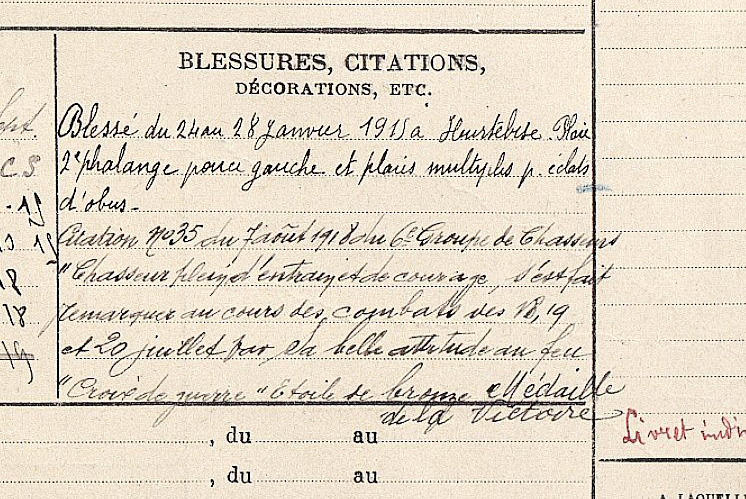 BLESSURES, CITATIONS,
DÉCORATIONS, ETC.
Blessé du 24 au 28 Janvier 1915 à Hurtebise. Plaie
2e phalange pouce gauche et plaies multiples p. éclats
d'obus.
Citation No 35 du 7 août 1918 du 6e Groupe de Chasseurs
"Chasseur plein d'entrain et de courage, s'est fait
remarquer au cours des combats des 18, 19
et 20 juillet par sa belle attitude au feu
"Croix de guerre" Etoile de bronze Médaille
de la Victoire
, du au
, du au
Livret
A LAQUELLE
18
18
19